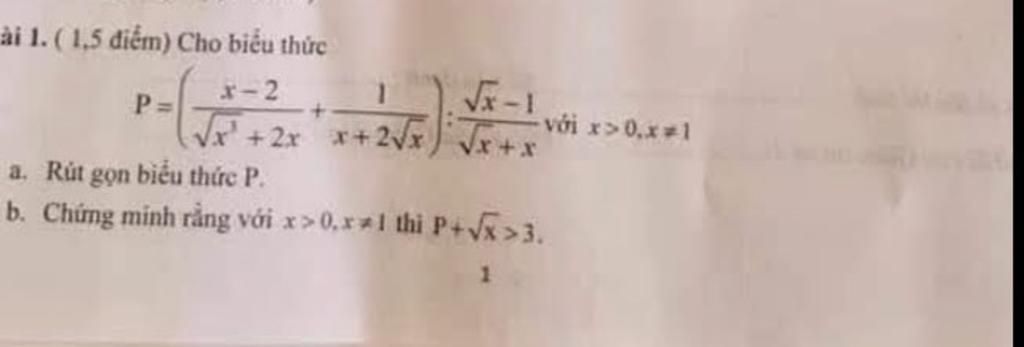 ài 1. ( 1,5 điểm) Cho biểu thức
P = ( \frac{x-2}{\sqrt{x^3}+2x} + \frac{1}{x+2\sqrt{x}} ) : \frac{\sqrt{x}-1}{\sqrt{x}+x} với x > 0, x ≠ 1
a. Rút gọn biểu thức P.
b. Chứng minh rằng với x > 0, x ≠ 1 thì P + √x > 3.
1